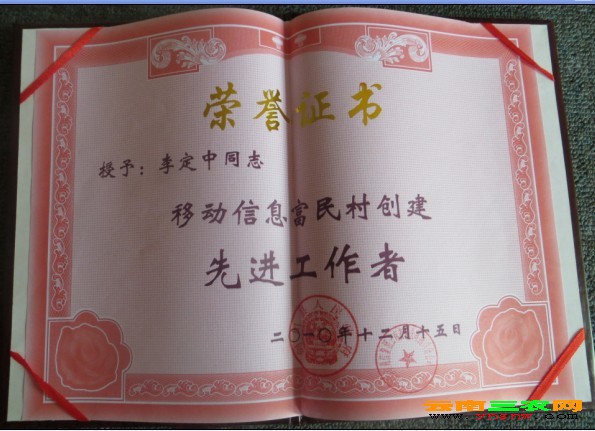 荣誉证书
授予：李定中同志
移动信息富民村创建
先进工作者
二〇一〇年十二月十五日
云南三农网